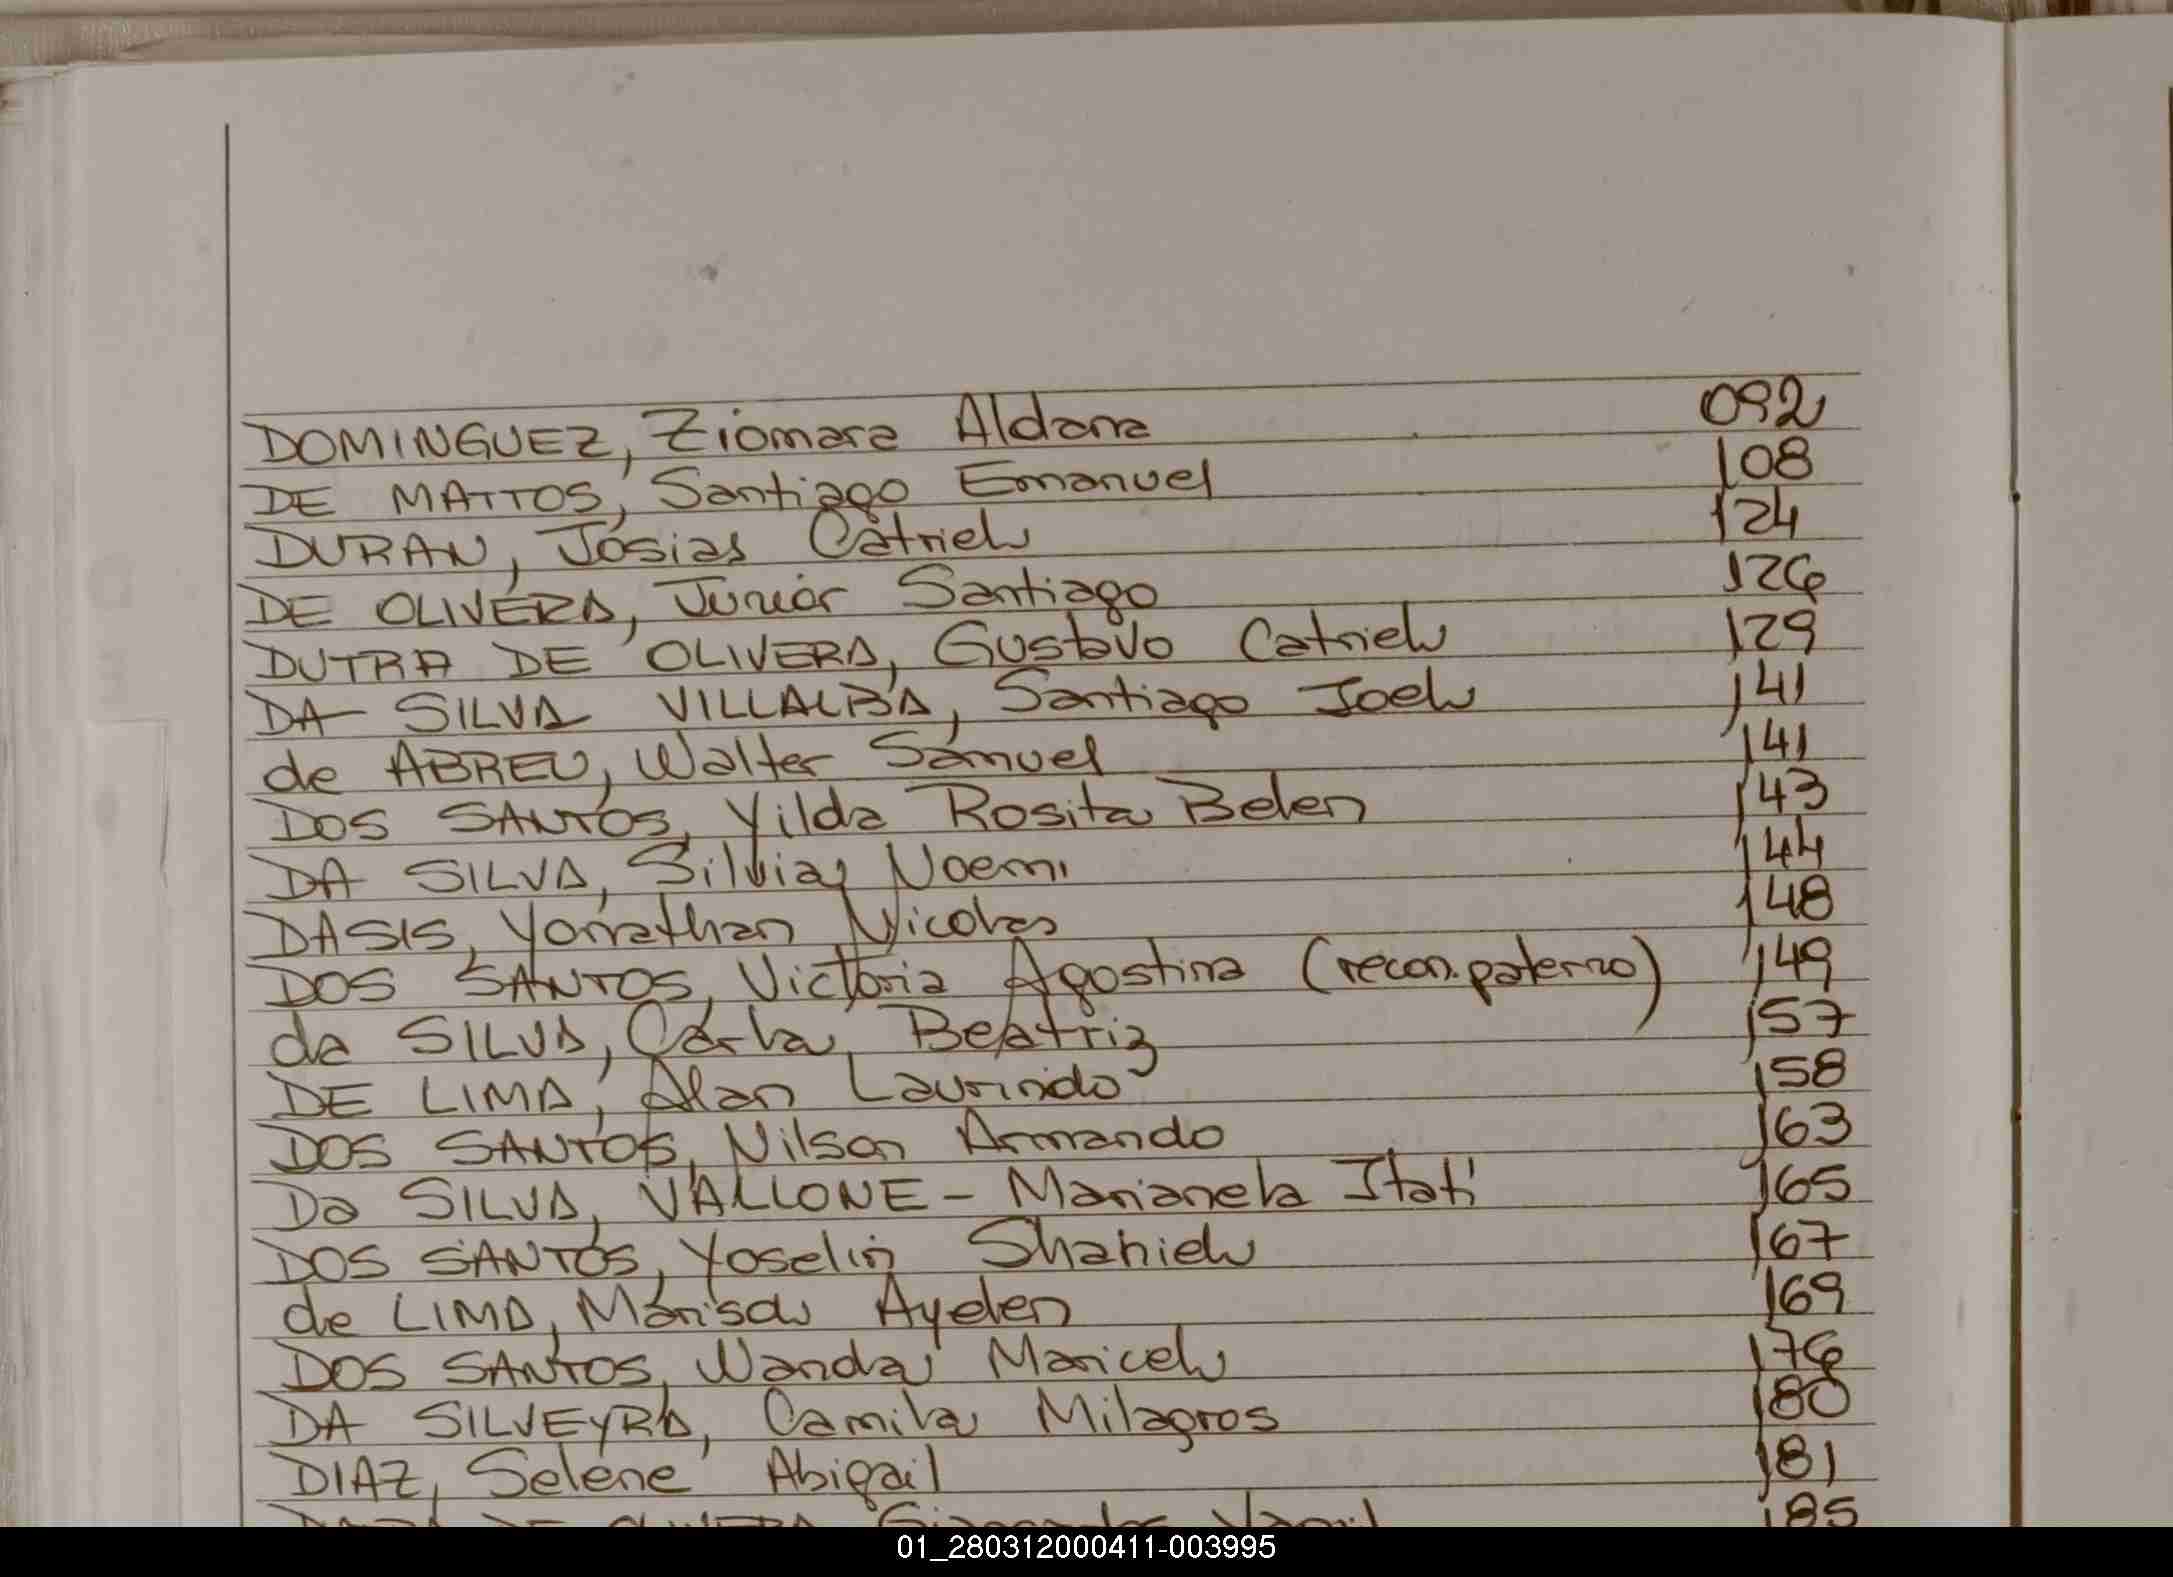 DOMINGUEZ, Ziomara Aldana 092
DE MATTOS, Santiago Emanuel 108
DURAN, Josias Catriel 124
DE OLIVERA, Junior Santiago 126
DUTRA DE OLIVERA, Gustavo Catriel 129
DA SILVA VILLALBA, Santiago Joel 141
de ABREU, Walter Samuel 141
DOS SANTOS, Yilda Rosita Belen 143
DA SILVA, Silvia Noemi 144
DASIS, Yonathan Nicolas 148
DOS SANTOS, Victoria Agostina (recon. paterno) 149
da SILVA, Carla Beatriz 157
DE LIMA, Alan Laurindo 158
DOS SANTOS, Nilson Armando 163
Da SILVA, VALLONE - Marianela Itatí 165
DOS SANTOS, Yoselin Shaniel 167
de LIMA, Marisa Ayelen 169
DOS SANTOS, Wanda Maricel 176
DA SILVEYRA, Camila Milagros 180
DIAZ, Selene Abigail 181
DE OLIVERA 185
01_280312000411-003995